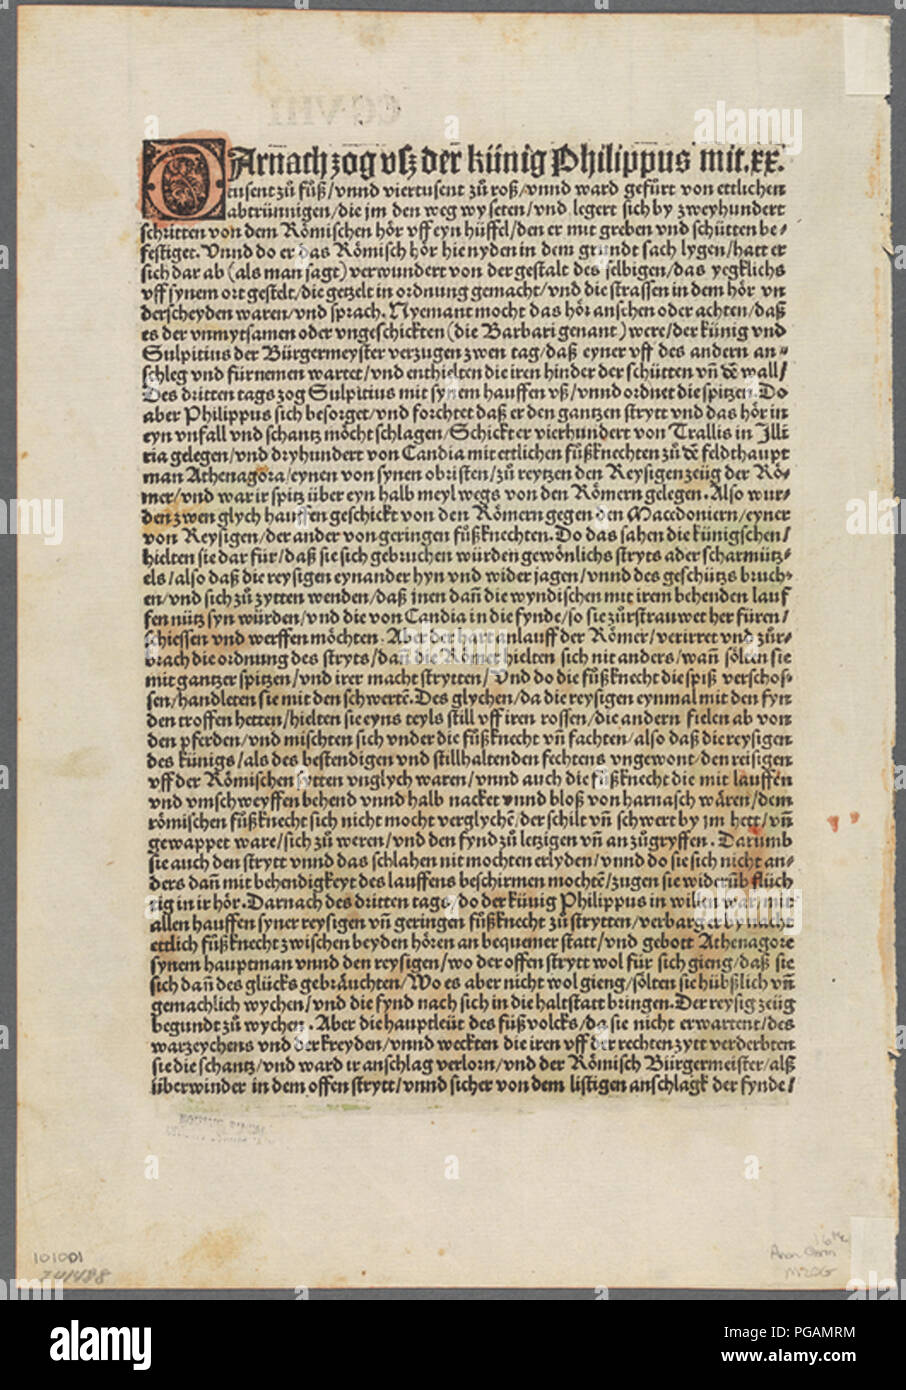 DArnach zog vsz der künig Philippus mit.xx.
tusent zů fůß/vnnd viertusent zů roß/vnnd ward gefürt von ettlichen
abtrünnigen/die jm den weg wyseten/vnd legert sich by zweyhundert
schritten von dem Römischen hör vff eyn hüffel/den er mit greben vnd schütten be-
festiget. Vnnd do er das Römisch hör hie nyden in dem grundt sach lygen/hatt er
sich dar ab (als man sagt) verwundert von der gestalt des selbigen/das yegklichs
vff synem ort gestelt/die getzelt in ordnung gemacht/vnd die strassen in dem hör vn
derscheyden waren/vnd sprach. Nyemant mocht das hör anschen oder achten/daß
es der vnmytsamen oder vngeschickten (die Barbari genant) were/der künig vnd
Sulpitius der Bürgermeyster verzugen zwen tag/daß eyner vff des andern an-
schleg vnd fürnemen wartet/vnd enthielten die iren hinder der schütten vñ dē wall/
Des dritten tags zog Sulpitius mit synem hauffen vß/vnnd ordnet die spitzen. Do
aber Philippus sich besorget/vnd forchtet daß er den gantzen strytt vnd das hör in
eyn vnfall vnd schantz möcht schlagen/Schickt er vierhundert von Trallis in Illi
ria gelegen/vnd dryhundert von Candia mit ettlichen fůßknechten zů dē feldthaupt
man Athenagora/eynen von synen obristen/zů reytzen den Reysigen zeüg der Rö-
mer/vnd war ir spitz über eyn halb meyl wegs von den Römern gelegen. Also wur-
den zwen glych hauffen geschickt von den Römern gegen den Macedoniern/eyner
von Reysigen/der ander von geringen fůßknechten. Do das sahen die künigschen/
hielten sie dar für/daß sie sich gebruchen würden gewönlichs stryts ader scharmütz-
els/also daß die reysigen eynander hyn vnd wider jagen/vnnd des geschütz bruch-
en/vnd sich zů zytten wenden/daß jnen dañ die wyndischen mit irem behenden lauf
fen nütz syn würden/vnd die von Candia in die fynde/so sie zürstrauwet her füren/
schiessen vnd werffen möchten. Aber der hart anlauff der Römer/verirret vnd zür-
brach die ordnung des stryts/dañ die Römer hielten sich nit anders/wañ sölten sie
mit gantzer spitzen/vnd irer macht strytten/Vnd do die fůßknecht die spiß verschos-
sen/handleten sie mit den schwertē. Des glychen/da die reysigen eynmal mit den fyn
den troffen hetten/hielten sie eyns teyls still vff iren rossen/die andern fielen ab von
den pferden/vnd mischten sich vnder die fůßknecht vñ fachten/also daß die reysigen
des künigs/als des bestendigen vnd stillhaltenden fechtens vngewont/den reisigen
vff der Römischen sytten vnglych waren/vnnd auch die fůßknecht die mit lauffen
vnd vmschweyffen behend vnnd halb nacket vnnd bloß von harnasch wären/dem
römischen fůßknecht sich nicht mocht verglychē/der schilt vñ schwert by jm hett/vñ
gewappet ware/sich zů weren/vnd den fynd zů letzigen vñ an zůgryffen. Darumb
sie auch den strytt vnnd das schlahen nit mochten erlyden/vnnd do sie sich nicht an-
ders dañ mit behendigkeyt des lauffens beschirmen mochtē/zugen sie widerüb flüch
tig in ir hör. Darnach des dritten tags/do der künig Philippus in willen war/mit
allen hauffen syner reysigen vñ geringen fůßknecht zů strytten/verbarg er by nacht
ettlich fůßknecht zwischen beyden hören an bequemer statt/vnd gebott Athenagore
synem hauptman vnnd den reysigen/wo der offen strytt wol für sich gieng/daß sie
sich dañ des glücks gebrauchten/Wo es aber nicht wol gieng/sölten sie hübßlich vñ
gemachlich wychen/vnd die fynd nach sich in die haltstatt bringen. Der reysig zeüg
begundt zů wychen. Aber die hauptleüt des fůßvolcks/da sie nicht erwartent/des
warzeychens vnd der kreyden/vnnd weckten die iren vff der rechten zytt verderbten
sie die schantz/vnd ward ir anschlag verlorn/vnd der Römisch Bürgermeister/alß
überwinder in dem offen strytt/vnnd sicher von dem listigen anschlagk der fynde/
101001
741488
alamy
Image ID: PGAMRM
www.alamy.com